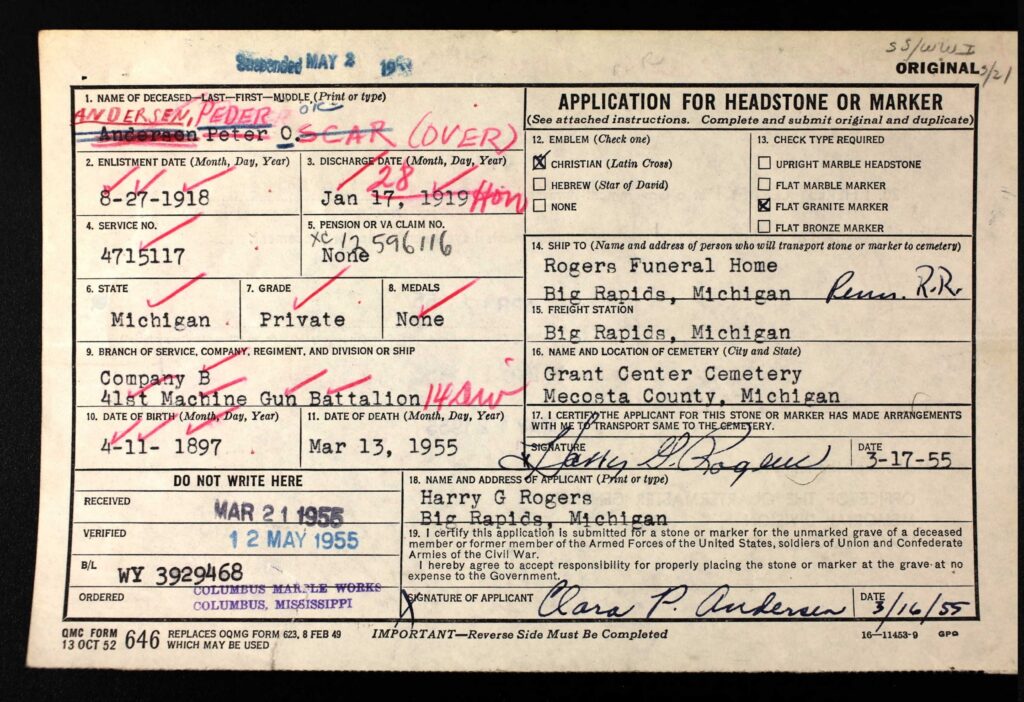 Suspended MAY 2
SS/WW I
ORIGINAL 3/21
1. NAME OF DECEASED—LAST—FIRST—MIDDLE (Print or type)
ANDERSEN, PEDER OK
Andersen Peter O. SCAR (OVER)
2. ENLISTMENT DATE (Month, Day, Year)
8-27-1918
3. DISCHARGE DATE (Month, Day, Year)
28
Jan 17, 1919 Hon
4. SERVICE NO.
4715117
5. PENSION OR VA CLAIM NO.
XC 12 596 116
None
6. STATE
Michigan
7. GRADE
Private
8. MEDALS
None
9. BRANCH OF SERVICE, COMPANY, REGIMENT, AND DIVISION OR SHIP
Company B
41st Machine Gun Battalion 14 Div
10. DATE OF BIRTH (Month, Day, Year)
4-11- 1897
11. DATE OF DEATH (Month, Day, Year)
Mar 13, 1955
DO NOT WRITE HERE
RECEIVED
MAR 21 1955
VERIFIED
12 MAY 1955
B/L
WY 3929468
ORDERED
COLUMBUS MARBLE WORKS
COLUMBUS, MISSISSIPPI
APPLICATION FOR HEADSTONE OR MARKER
(See attached instructions. Complete and submit original and duplicate)
12. EMBLEM (Check one)
CHRISTIAN (Latin Cross)
HEBREW (Star of David)
NONE
13. CHECK TYPE REQUIRED
UPRIGHT MARBLE HEADSTONE
FLAT MARBLE MARKER
FLAT GRANITE MARKER
FLAT BRONZE MARKER
14. SHIP TO (Name and address of person who will transport stone or marker to cemetery)
Rogers Funeral Home
Big Rapids, Michigan Penn. R.R.
15. FREIGHT STATION
Big Rapids, Michigan
16. NAME AND LOCATION OF CEMETERY (City and State)
Grant Center Cemetery
Mecosta County, Michigan
17. I CERTIFY THE APPLICANT FOR THIS STONE OR MARKER HAS MADE ARRANGEMENTS
WITH ME TO TRANSPORT SAME TO THE CEMETERY.
SIGNATURE
x Harry G. Rogers
DATE
3-17-55
18. NAME AND ADDRESS OF APPLICANT (Print or type)
Harry G Rogers
Big Rapids, Michigan
19. I certify this application is submitted for a stone or marker for the unmarked grave of a deceased
member or former member of the Armed Forces of the United States, soldiers of Union and Confederate
Armies of the Civil War.
I hereby agree to accept responsibility for properly placing the stone or marker at the grave at no
expense to the Government.
X SIGNATURE OF APPLICANT Clara P. Andersen
DATE
3/16/55
QMC FORM
13 OCT 52 646 REPLACES OQMG FORM 623, 8 FEB 49
WHICH MAY BE USED
IMPORTANT—Reverse Side Must Be Completed
16—11453-9 GPO